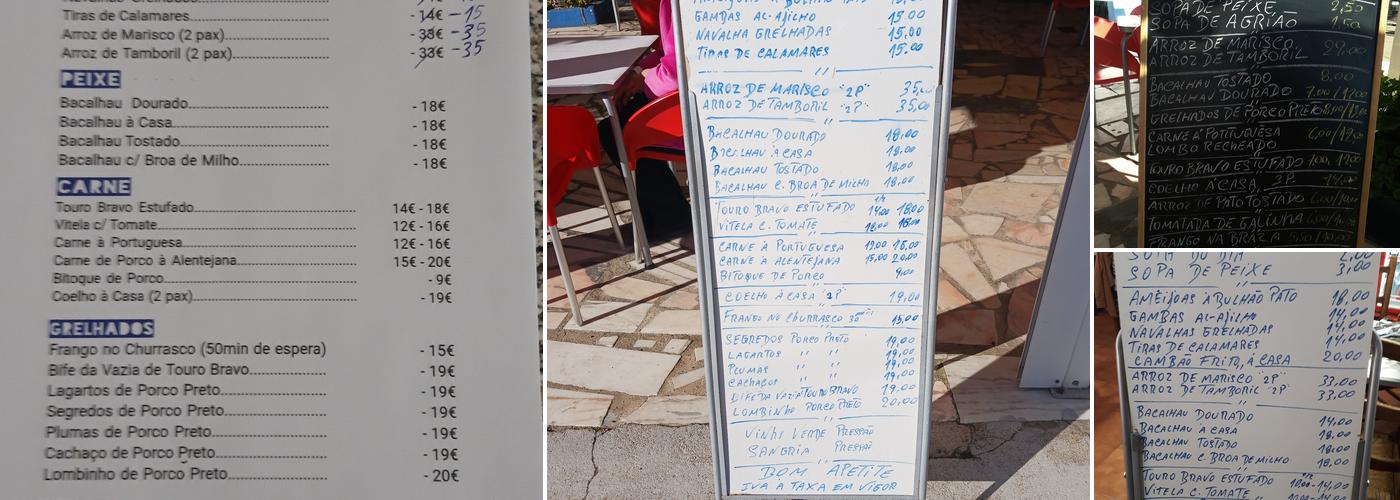 Tiras de Calamares - 14€ - 15
Arroz de Marisco (2 pax) - 38€ - 35
Arroz de Tamboril (2 pax) - 33€ - 35
PEIXE
Bacalhau Dourado - 18€
Bacalhau à Casa - 18€
Bacalhau Tostado - 18€
Bacalhau c/ Broa de Milho - 18€
CARNE
Touro Bravo Estufado 14€ - 18€
Vitela c/ Tomate 12€ - 16€
Carne à Portuguesa 12€ - 16€
Carne de Porco à Alentejana 15€ - 20€
Bitoque de Porco - 9€
Coelho à Casa (2 pax) - 19€
GRELHADOS
Frango no Churrasco (50min de espera) - 15€
Bife da Vazia de Touro Bravo - 19€
Lagartos de Porco Preto - 19€
Segredos de Porco Preto - 19€
Plumas de Porco Preto - 19€
Cachaço de Porco Preto - 19€
Lombinho de Porco Preto - 20€
GAMBAS AL-AJILHO 15.00
NAVALHA GRELHADAS 15,00
TIRAS DE CALAMARES 15.00
ARROZ DE MARISCO "2P" 35,
ARROZ DE TAMBORIL "2P" 35,00
BACALHAU DOURADO 18,00
BACALHAU A CASA 18,00
BACALHAU TOSTADO 18,00
BACALHAU C. BROA DE MILHO 18,00
TOURO BRAVO ESTUFADO 14,00 18,00
VITELA C. TOMATE 16,00
CARNE À PORTUGUESA 12,00 16,00
CARNE À ALENTEJANA 15,00 20,00
BITOQUE DE PORCO 9,00
COELHO À CASA "2P" 19,00
FRANGO NO CHURRASCO 15,00
SEGREDOS PORCO PRETO 19,00
LAGARTOS " " 19,00
PLUMAS " " 19,00
CACHAÇOS " " 19,00
BIFE DA VAZIA TOURO BRAVO 19,00
LOMBINHO PORCO PRETO 20,00
VINHO VERDE PRESSÃO
SANGRIA PRESSÃO
BOM APETITE
IVA A TAXA EM VIGOR
SOPA DE PEIXE 2,50
SOPA DE AGRIÃO 1,50
ARROZ DE MARISCO
ARROZ DE TAMBORIL
BACALHAU TOSTADO 8,00
BACALHAU DOURADO 7,00/12,00
GRELHADOS DE PORCO PRETO
CARNE À PORTUGUESA
LOMBO RECHEADO
TOURO BRAVO ESTUFADO
COELHO À CASA, 2P.
ARROZ DE PATO TOSTADO
TOMATADA DE GALINHA
FRANGO NA BRAZA
SOPA DO DIA 2,00
SOPA DE PEIXE 3,00
AMÊIJOAS À BULHÃO PATO 18,00
GAMBAS AL-AJILHO 14,00
NAVALHAS GRELHADAS 14,00
TIRAS DE CALAMARES 14,00
CAMBÃO FRITO, À CASA 20,00
ARROZ DE MARISCO "2P" 33,00
ARROZ DE TAMBORIL "2P" 33,00
BACALHAU DOURADO 14,00
BACALHAU À CASA 18,00
BACALHAU TOSTADO 18,00
BACALHAU C. BROA DE MILHO 18,00
TOURO BRAVO ESTUFADO 10,00-14,00
VITELA C. TOMATE